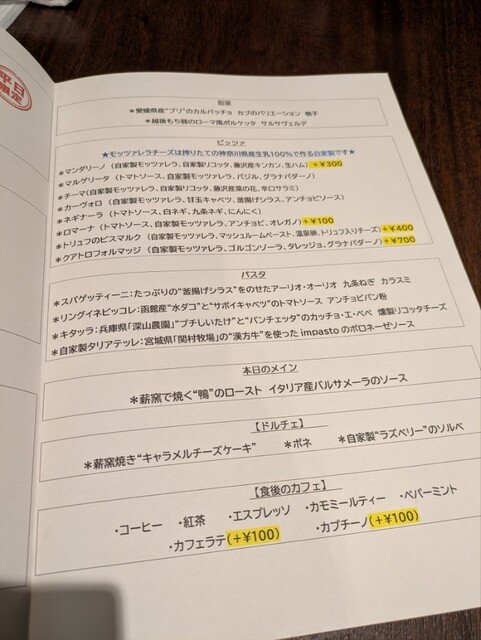 平日
限定
前菜
＊愛媛県産“ブリ”のカルパッチョ カブのバリエーション 柚子
＊越後もち豚のローマ風ポルケッタ サルサヴェルデ
ピッツァ
★モッツァレラチーズは搾りたての神奈川県産生乳100％で作る自家製です★
＊マンダリーノ（自家製モッツァレラ、自家製リコッタ、藤沢産キンカン、生ハム）＋¥300
＊マルゲリータ（トマトソース、自家製モッツァレラ、バジル、グラナパダーノ）
＊チーマ（自家製モッツァレラ、自家製リコッタ、藤沢産菜の花、辛口サラミ）
＊カーヴォロ（自家製モッツァレラ、甘玉キャベツ、釜揚げシラス、アンチョビソース）
＊ネギナーラ（トマトソース、白ネギ、九条ネギ、にんにく）
＊ロマーナ（トマトソース、自家製モッツァレラ、アンチョビ、オレガノ）＋¥100
＊トリュフのビスマルク（自家製モッツァレラ、マッシュルームペースト、温泉卵、トリュフ入りチーズ）＋¥400
＊クアトロフォルマッジ（自家製モッツァレラ、ゴルゴンゾーラ、タレッジョ、グラナパダーノ）＋¥700
パスタ
＊スパゲッティーニ：たっぷりの“釜揚げシラス”をのせたアーリオ・オーリオ 九条ねぎ カラスミ
＊リングイネピッコレ：函館産“水ダコ”と“サボイキャベツ”のトマトソース アンチョビパン粉
＊キタッラ：兵庫県「深山農園」“プチしいたけ”と“パンチェッタ”のカッチョ・エ・ペペ 燻製リコッタチーズ
＊自家製タリアテッレ：宮城県「関村牧場」の“漢方牛”を使った impastoのボロネーゼソース
本日のメイン
＊薪窯で焼く“鴨”のロースト イタリア産バルサメーラのソース
【ドルチェ】
＊薪窯焼き“キャラメルチーズケーキ” ＊ボネ ＊自家製“ラズベリー”のソルベ
【食後のカフェ】
・コーヒー ・紅茶 ・エスプレッソ ・カモミールティー ・ペパーミント
・カフェラテ（＋¥100） ・カプチーノ（＋¥100）